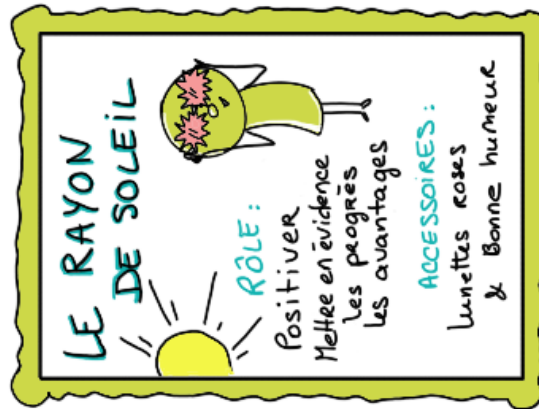 LE RAYON
DE SOLEIL
RÔLE :
Positiver
Mettre en évidence
les progrès
les avantages
ACCESSOIRES :
Lunettes roses
& Bonne humeur